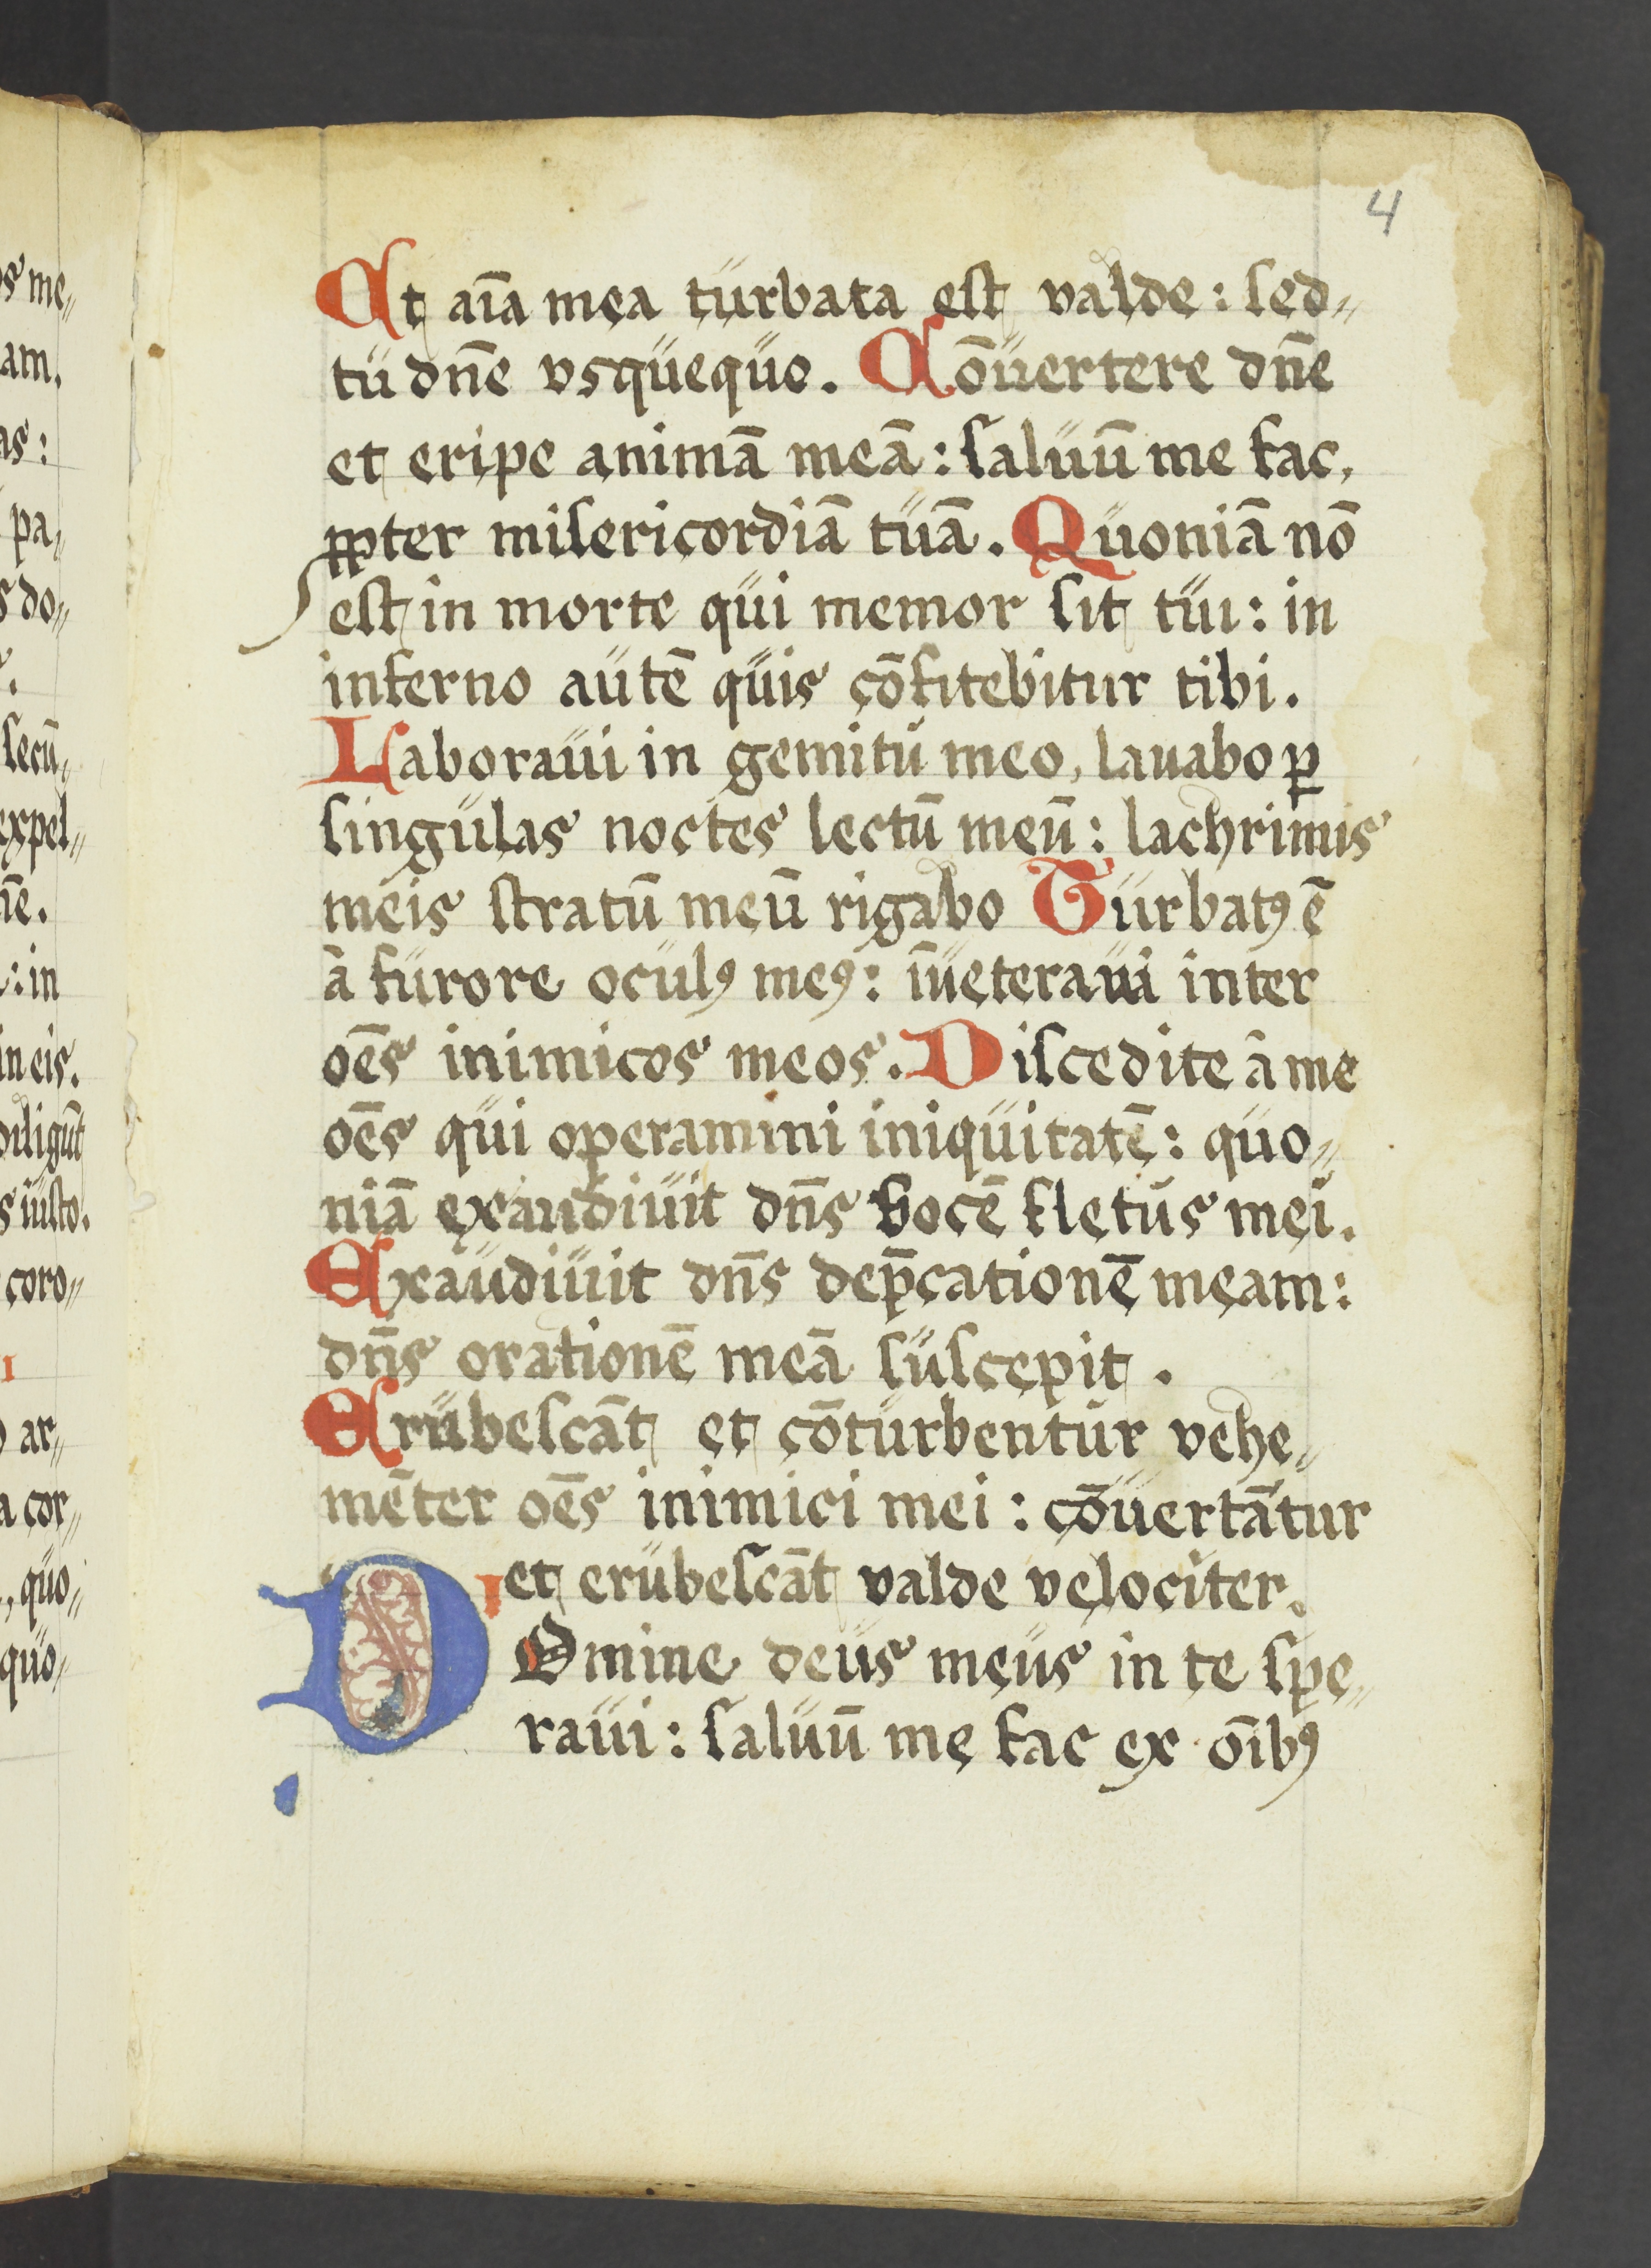 4
Et aīa mea turbata est valde: sed„
tu dn̄e vsquequo. Cōuertere dn̄e
et eripe animā meā: saluū me fac,
ꝓpter misericordiā tuā. Quoniā nō
est in morte qui memor sit tui: in
inferno autē quis cōfitebitur tibi.
Laboraui in gemitu meo, lauabo ꝑ
singulas noctes lectū meū: lachrimis
meis stratū meū rigabo Turbatꝰ ē
â furore oculꝰ meꝰ: īueteraui inter
oēs inimicos meos. Discedite â me
oēs qui operamini iniquitatē: quo„
niā exaudiuit dn̄s vocē fletus mei.
Exaudiuit dn̄s dep̄cationē meam:
dn̄s orationē meā suscepit.
Erubescāt et cōturbentur vehe„
mēter oēs inimici mei: cōuertātur
et erubescāt valde velociter.
DOmine deus meus in te spe„
raui: saluū me fac ex oībꝰ